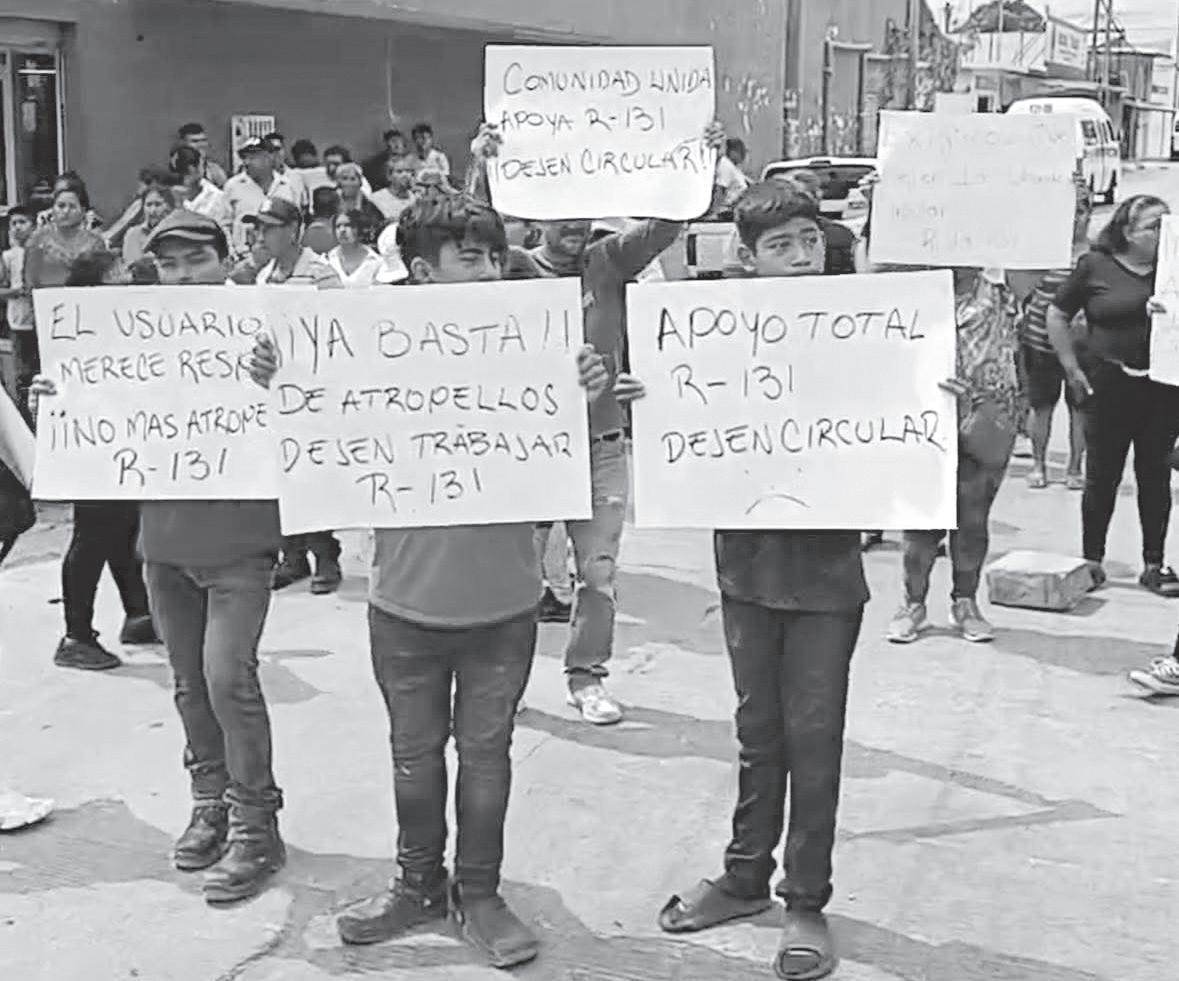 COMUNIDAD UNIDA
APOYA R-131
¡¡DEJEN CIRCULAR!!
EL USUARIO
MERECE RESP
¡¡NO MAS ATROPE
R-131
¡¡YA BASTA!!
DE ATROPELLOS
DEJEN TRABAJAR
R-131
APOYO TOTAL
R-131
DEJEN CIRCULAR